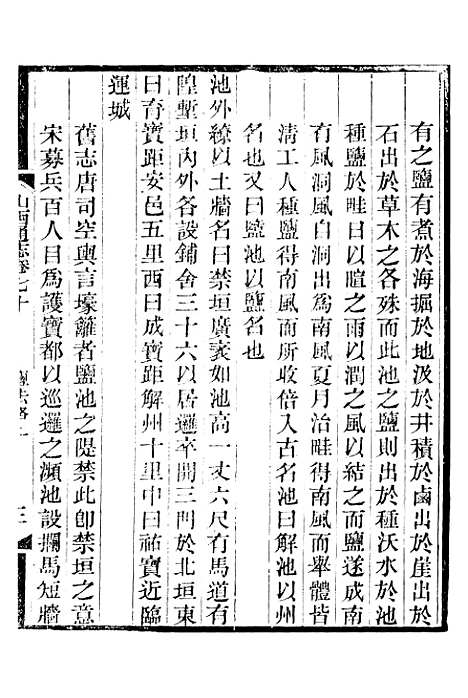 有之鹽有煮於海掘於地汲於井積於鹵出於崖出於
石出於草木之各殊而此池之鹽則出於種沃水於池
種鹽於畦日以暄之雨以潤之風以結之而鹽遂成南
有風洞風自洞出為南風夏月治畦得南風而舉體皆
清工人種鹽得南風而所收倍入古名池曰解池以州
名也又曰鹽池以鹽名也
池外繚以土牆名曰禁垣廣袤如池高一丈六尺有馬道有
隍塹垣內外各設鋪舍三十六以居邏卒開三門於北垣東
曰育寶距安邑五里西曰成寶距解州十里中曰祐寶近臨
運城
舊志唐司空輿言壕籬者鹽池之隄禁此卽禁垣之意
宋募兵百人目為護寶都以巡邏之瀕池設攔馬短牆
山西通志卷七十
鹽法畧一
三